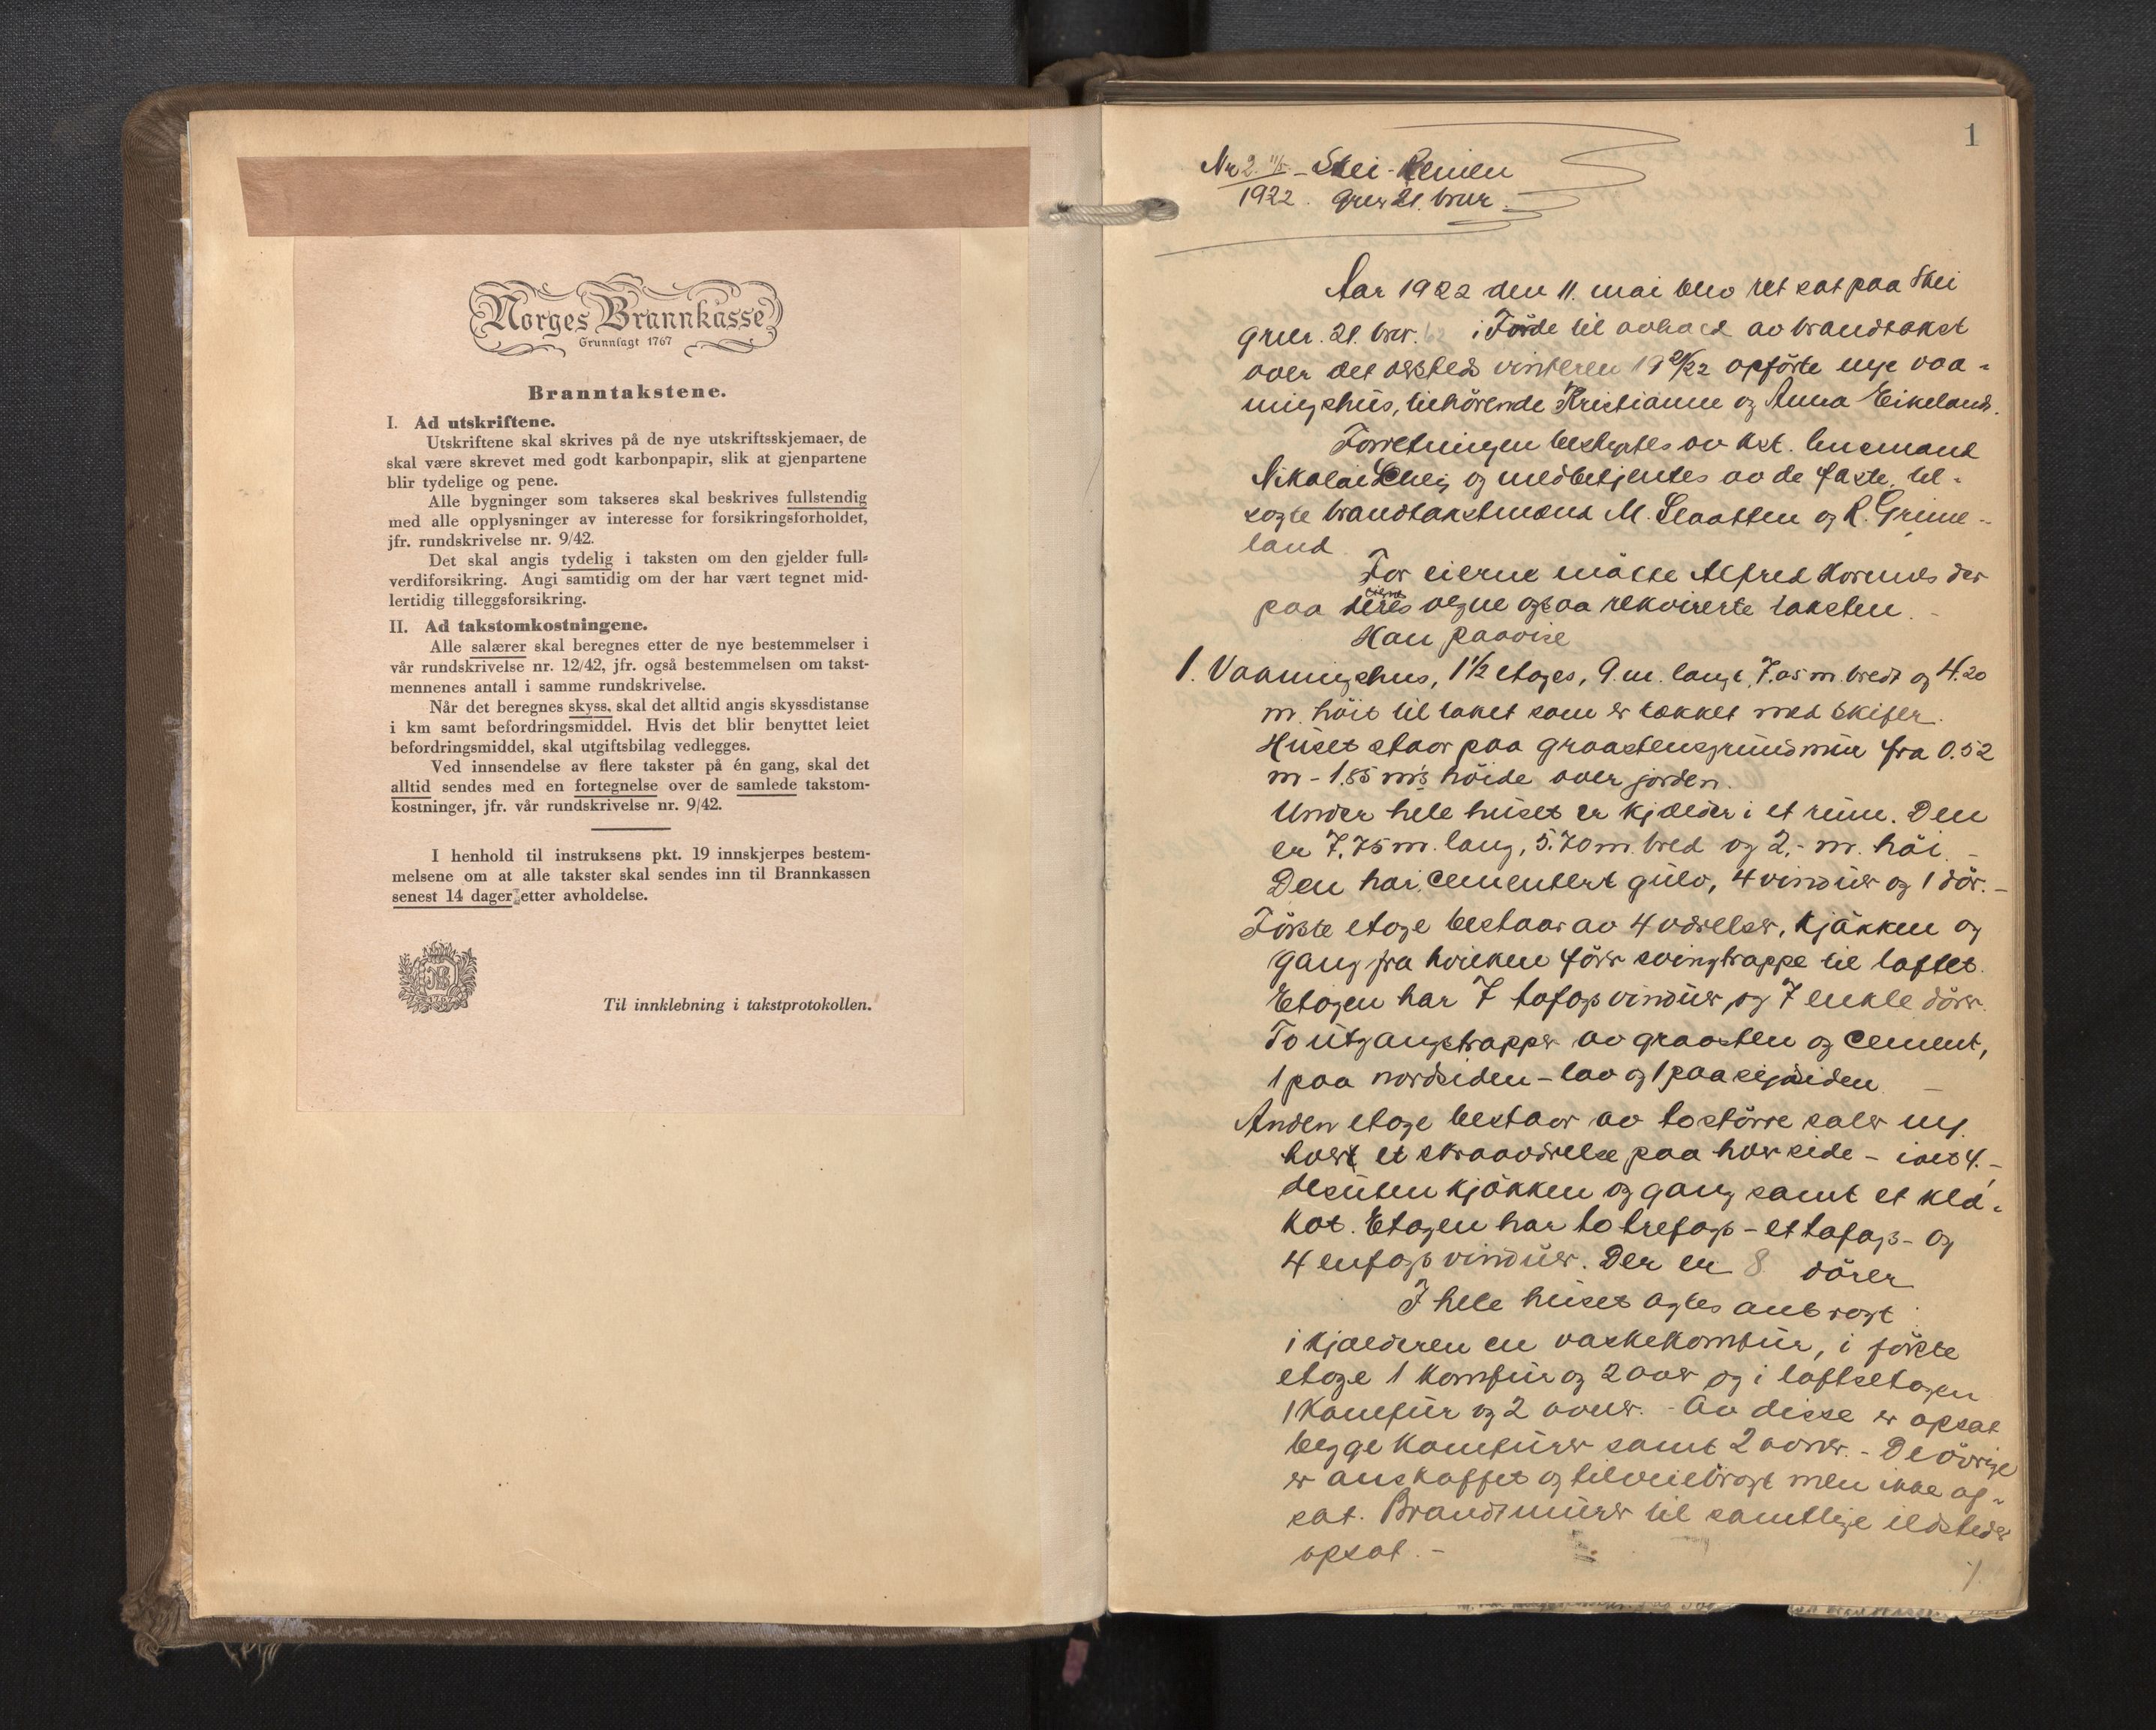 Norges Brannkasse
Grunnlagt 1767
Branntakstene.
I. Ad utskriftene.
Utskriftene skal skrives på de nye utskriftsskjemaer, de
skal være skrevet med godt karbonpapir, slik at gjenpartene
blir tydelige og pene.
Alle bygninger som takseres skal beskrives fullstendig
med alle opplysninger av interesse for forsikringsforholdet,
jfr. rundskrivelse nr. 9/42.
Det skal angis tydelig i taksten om den gjelder full-
verdiforsikring. Angi samtidig om der har vært tegnet mid-
lertidig tilleggsforsikring.
II. Ad takstomkostningene.
Alle salærer skal beregnes etter de nye bestemmelser i
vår rundskrivelse nr. 12/42, jfr. også bestemmelsen om takst-
mennenes antall i samme rundskrivelse.
Når det beregnes skyss, skal det alltid angis skyssdistanse
i km samt befordringsmiddel. Hvis det blir benyttet leiet
befordringsmiddel, skal utgiftsbilag vedlegges.
Ved innsendelse av flere takster på én gang, skal det
alltid sendes med en fortegnelse over de samlede takstom-
kostninger, jfr. vår rundskrivelse nr. 9/42.
I henhold til instruksens pkt. 19 innskjerpes bestem-
melsene om at alle takster skal sendes inn til Brannkassen
senest 14 dager etter avholdelse.
NB
Til innklebning i takstprotokollen.
1
Nr 2. 11/5 - Skei-
1922. grnr 21. brnr.
Aar 1922 den 11. mai blev ret sat paa Skei
grnr. 21. bnr. 62 i Förde til avhold av brandtakst
over det dersteds vinteren 1921/22 opförte nye vaa-
ningshus, tilhörende Kristianne og Anna Eikeland.
Forretningen bestyrtes av kst. lensmand
Nikolai Schei og medbetjentes av de faste, til-
sagte brandtakstmænd M. Slaatten og R. Grime-
land.
For eierne mötte Alfred Hornnes der
paa deres eiernes vegne ogsaa rekvirerte taksten. -
Han paaviste
1. Vaaningshus, 1 1/2 etages, 9. m. langt, 7.05 m. bredt og 4.20
m. höit til taket som er tækket med skifer.
Huset staar paa graastensgrundmur fra 0.52
m - 1.85 m's höide over jorden.
Under hele huset er kjælder i et rum. Den
er 7.75 m. lang, 5.70 m. bred og 2,- m. höi. -
Den har cementert gulv, 4 vinduer og 1 dör. -
Förste etage bestaar av 4 værelser, kjökken og
gang fra hvilken förer svingtrappe til loftet.
Etagen har 7 tofags vinduer og 7 enkle dörer.
To utgangstrapper av graasten og cement,
1 paa nordsiden - lav og 1 paa sjösiden. -
Anden etage bestaar av to större saler m.
hvert et skraaværelse paa hver side - ialt 4. -
desuten kjökken og gang samt et klæ-
kot. Etagen har to trefags - et tofags - og
4 enfags vinduer. Der er 8 dörer
I hele huset agtes anbragt
i kjælderen en vaskekomfur, i förste
etage 1 komfur og 2 ovner og i loftsetagen
1 komfur og 2 ovner. - Av disse er opsat
begge komfurer samt 2 ovner. - De övrige
er anskaffet og tilveiebragt men ikke op-
sat. Brandmurer til samtlige ildsteder
opsat. -